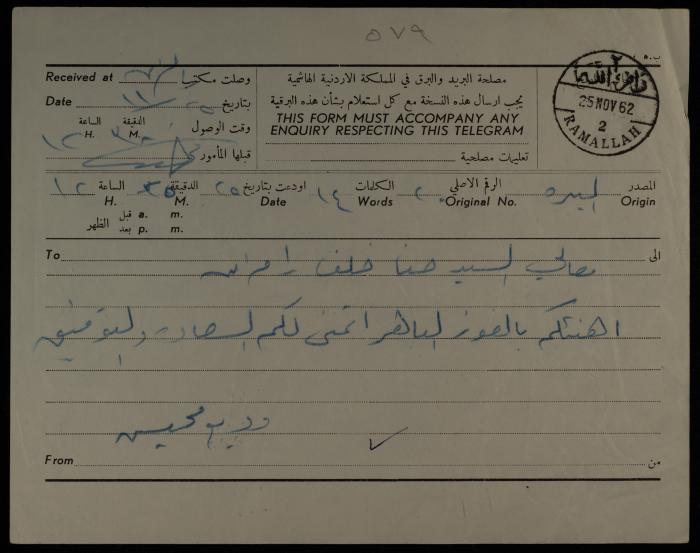 ٥٧٩
Received at وصلت مكتب
Date ١١/٢٥ بتاريخ
H. الساعة M. الدقيقة وقت الوصول
قبلها المأمور
مصلحة البريد والبرق في المملكة الاردنية الهاشمية
يجب ارسال هذه النسخة مع كل استعلام بشأن هذه البرقية
THIS FORM MUST ACCOMPANY ANY
ENQUIRY RESPECTING THIS TELEGRAM
تعليمات مصلحية
رام الله
25 NOV 62
2
RAMALLAH
المصدر البيره الرقم الاصلي ٢٠ الكلمات ١٤ اودعت بتاريخ ٢٥ الدقيقة ٣٥ الساعة ١٢
Origin Original No. Words Date M. H.
قبل a. m.
الظهر
بعد p. m.
To معالي السيد حنا خلف رام الله الى
اهنئكم بالفوز الباهر اتمنى لكم السعادة والتوفيق
وديع محيسن
From من